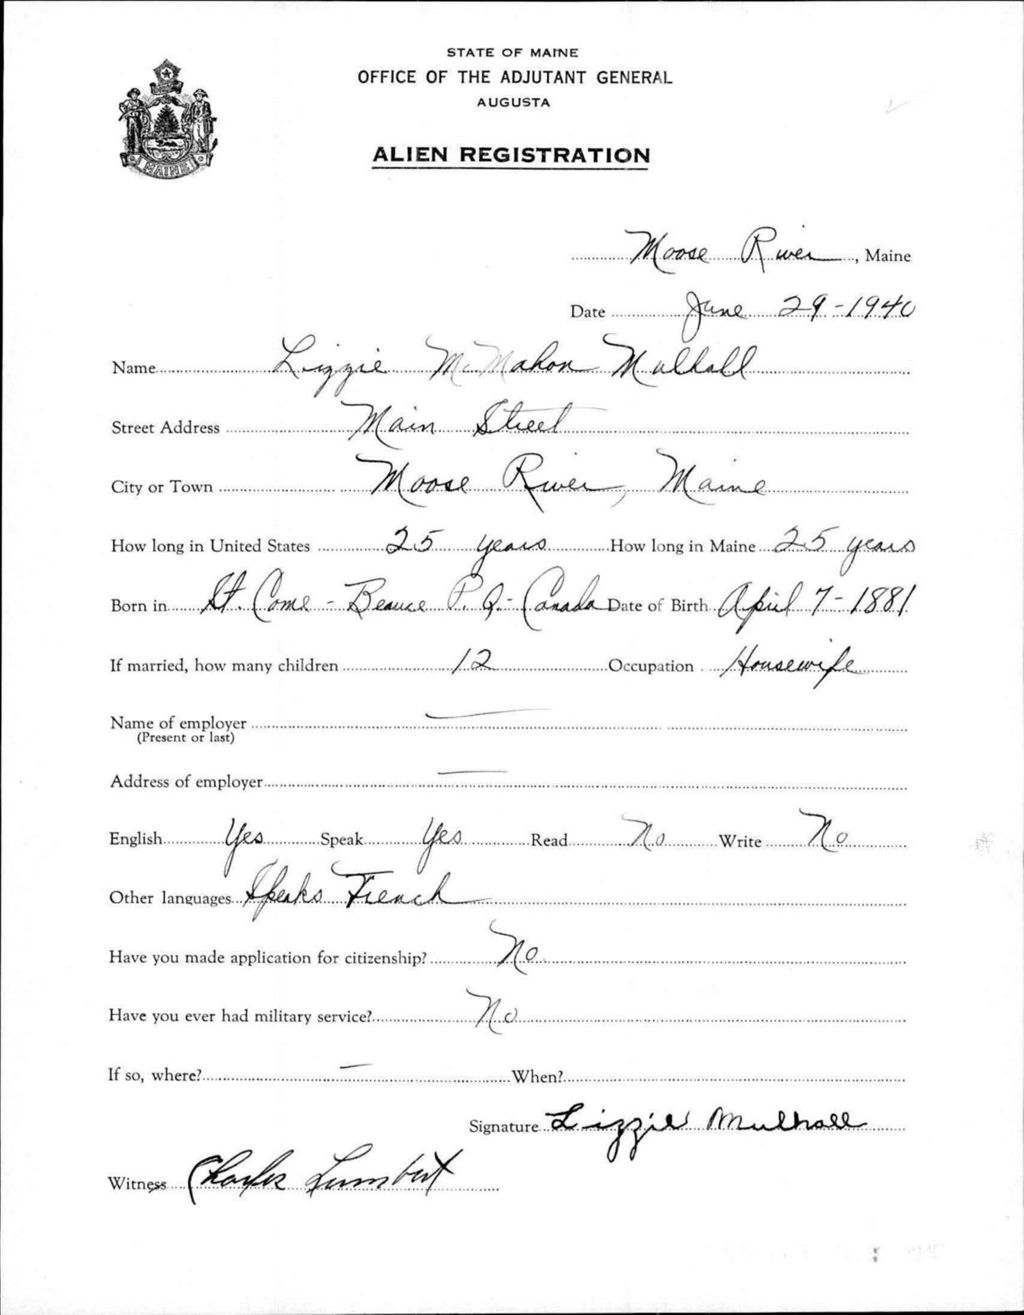 STATE OF MAINE
OFFICE OF THE ADJUTANT GENERAL
AUGUSTA
ALIEN REGISTRATION
MAINE
Moose River, Maine
Date June 29-1940
Name Lizzie McMahon Mulhall
Street Address Main Street
City or Town Moose River, Maine
How long in United States 25 years How long in Maine 25 years
Born in St. Come - Beauce P. Q. - Canada Date of Birth April 7-1881
If married, how many children 12 Occupation Housewife
Name of employer —
(Present or last)
Address of employer —
English Yes Speak Yes Read No Write No
Other languages Speaks French
Have you made application for citizenship? No
Have you ever had military service? No
If so, where? — When?
Signature Lizzie Mulhall
Witness Charles Lumbert